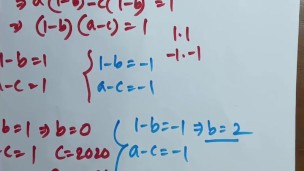 ⇒ a(1-b)-c(1-b) = 1
⇒ (1-b)(a-c) = 1
1.1
-1.-1
1-b=1
a-c=1
{ 1-b=-1
a-c=-1
b=1 ⇒ b=0
-c=1 c=2020
{ 1-b=-1 ⇒ b=2
a-c=-1